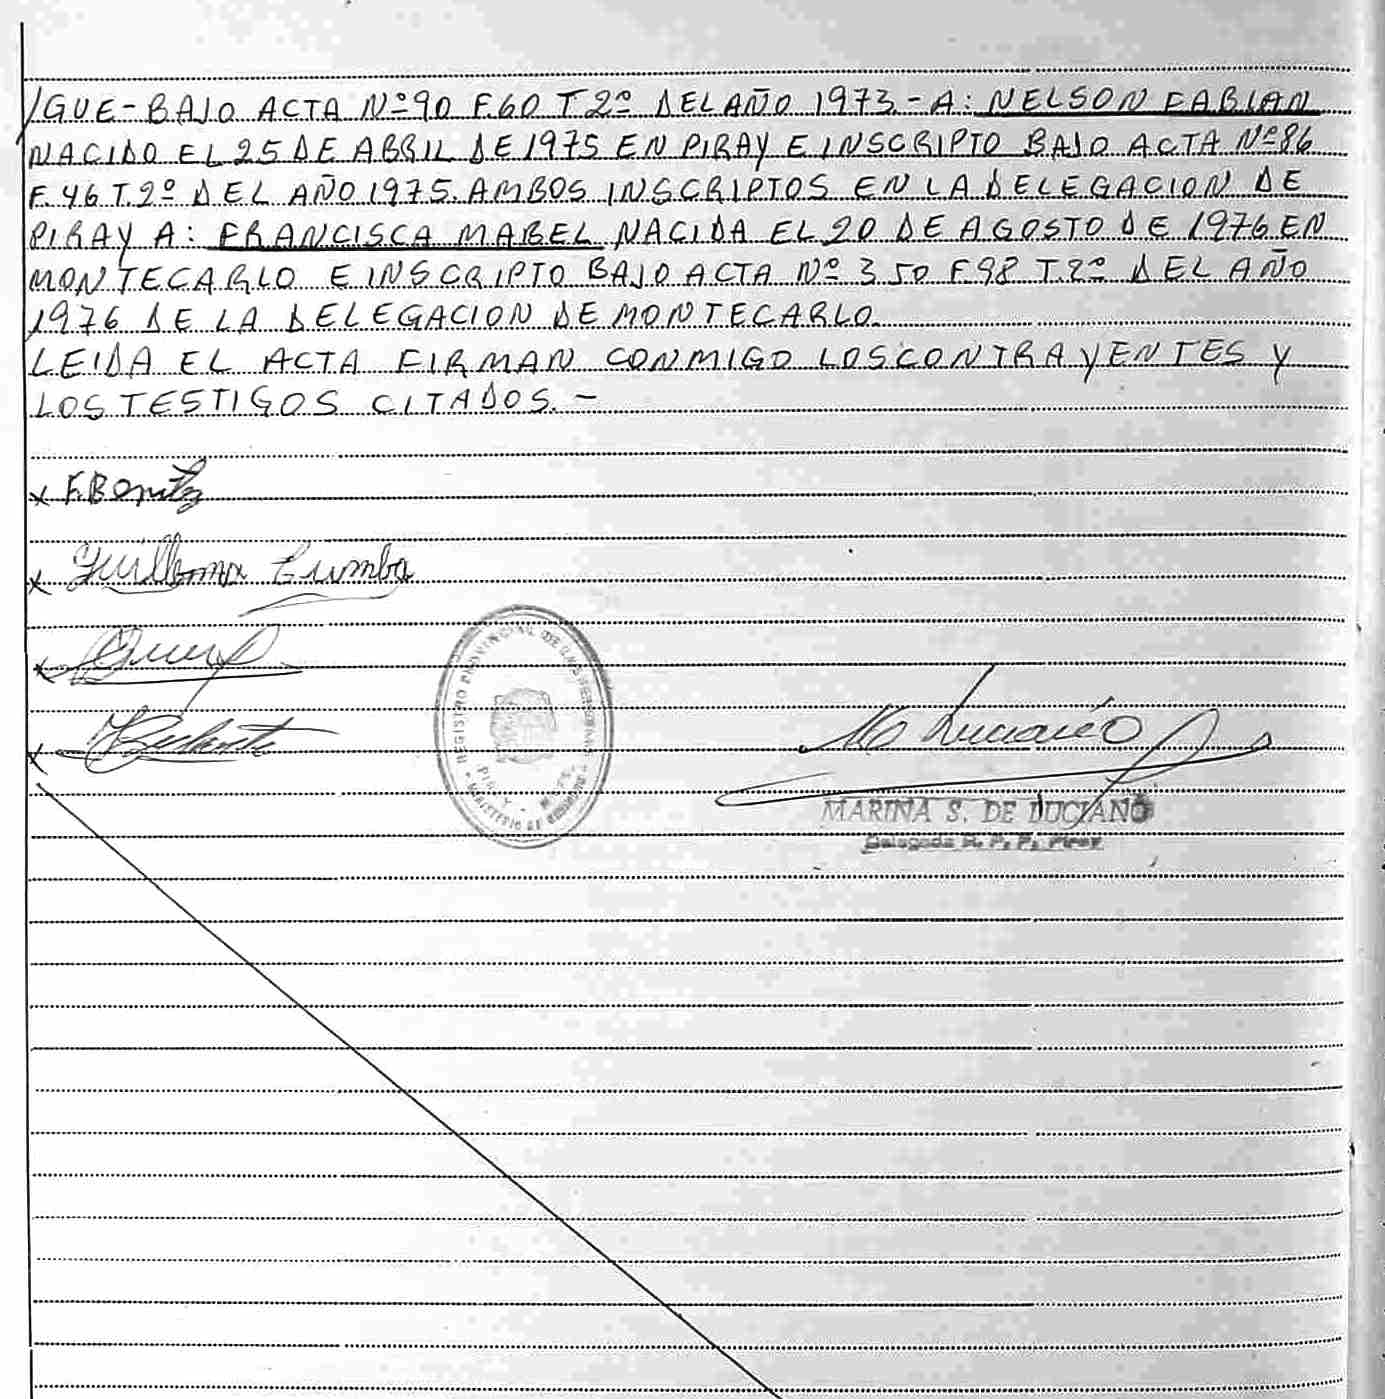 /GUE-BAJO ACTA Nº90 F.60 T.2º DEL AÑO 1973.-A: NELSON FABIAN
NACIDO EL 25 DE ABRIL DE 1975 EN PIRAY E INSCRIPTO BAJO ACTA Nº86
F.46 T.2º DEL AÑO 1975. AMBOS INSCRIPTOS EN LA DELEGACION DE
PIRAY A: FRANCISCA MABEL NACIDA EL 20 DE AGOSTO DE 1976 EN
MONTECARLO E INSCRIPTO BAJO ACTA Nº 350 F98 T.2º DEL AÑO
1976 DE LA DELEGACION DE MONTECARLO.
LEIDA EL ACTA FIRMAN CONMIGO LOS CONTRAYENTES Y
LOS TESTIGOS CITADOS.-
x F.Benitez
x Guillerma
x
x
REGISTRO PROVINCIAL DE LAS PERSONAS
MINISTERIO DE GOBIERNO
M Luciano
MARINA S. DE LUCIANO
Delegada R. P. P. Piray